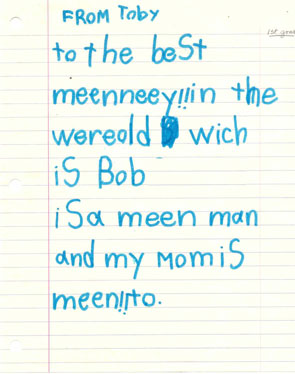 FROM ToBY
1st grad
to the beSt
meenneey!!in the
wereold wich
iS Bob
iSa meen man
and my MomiS
meen!!to.